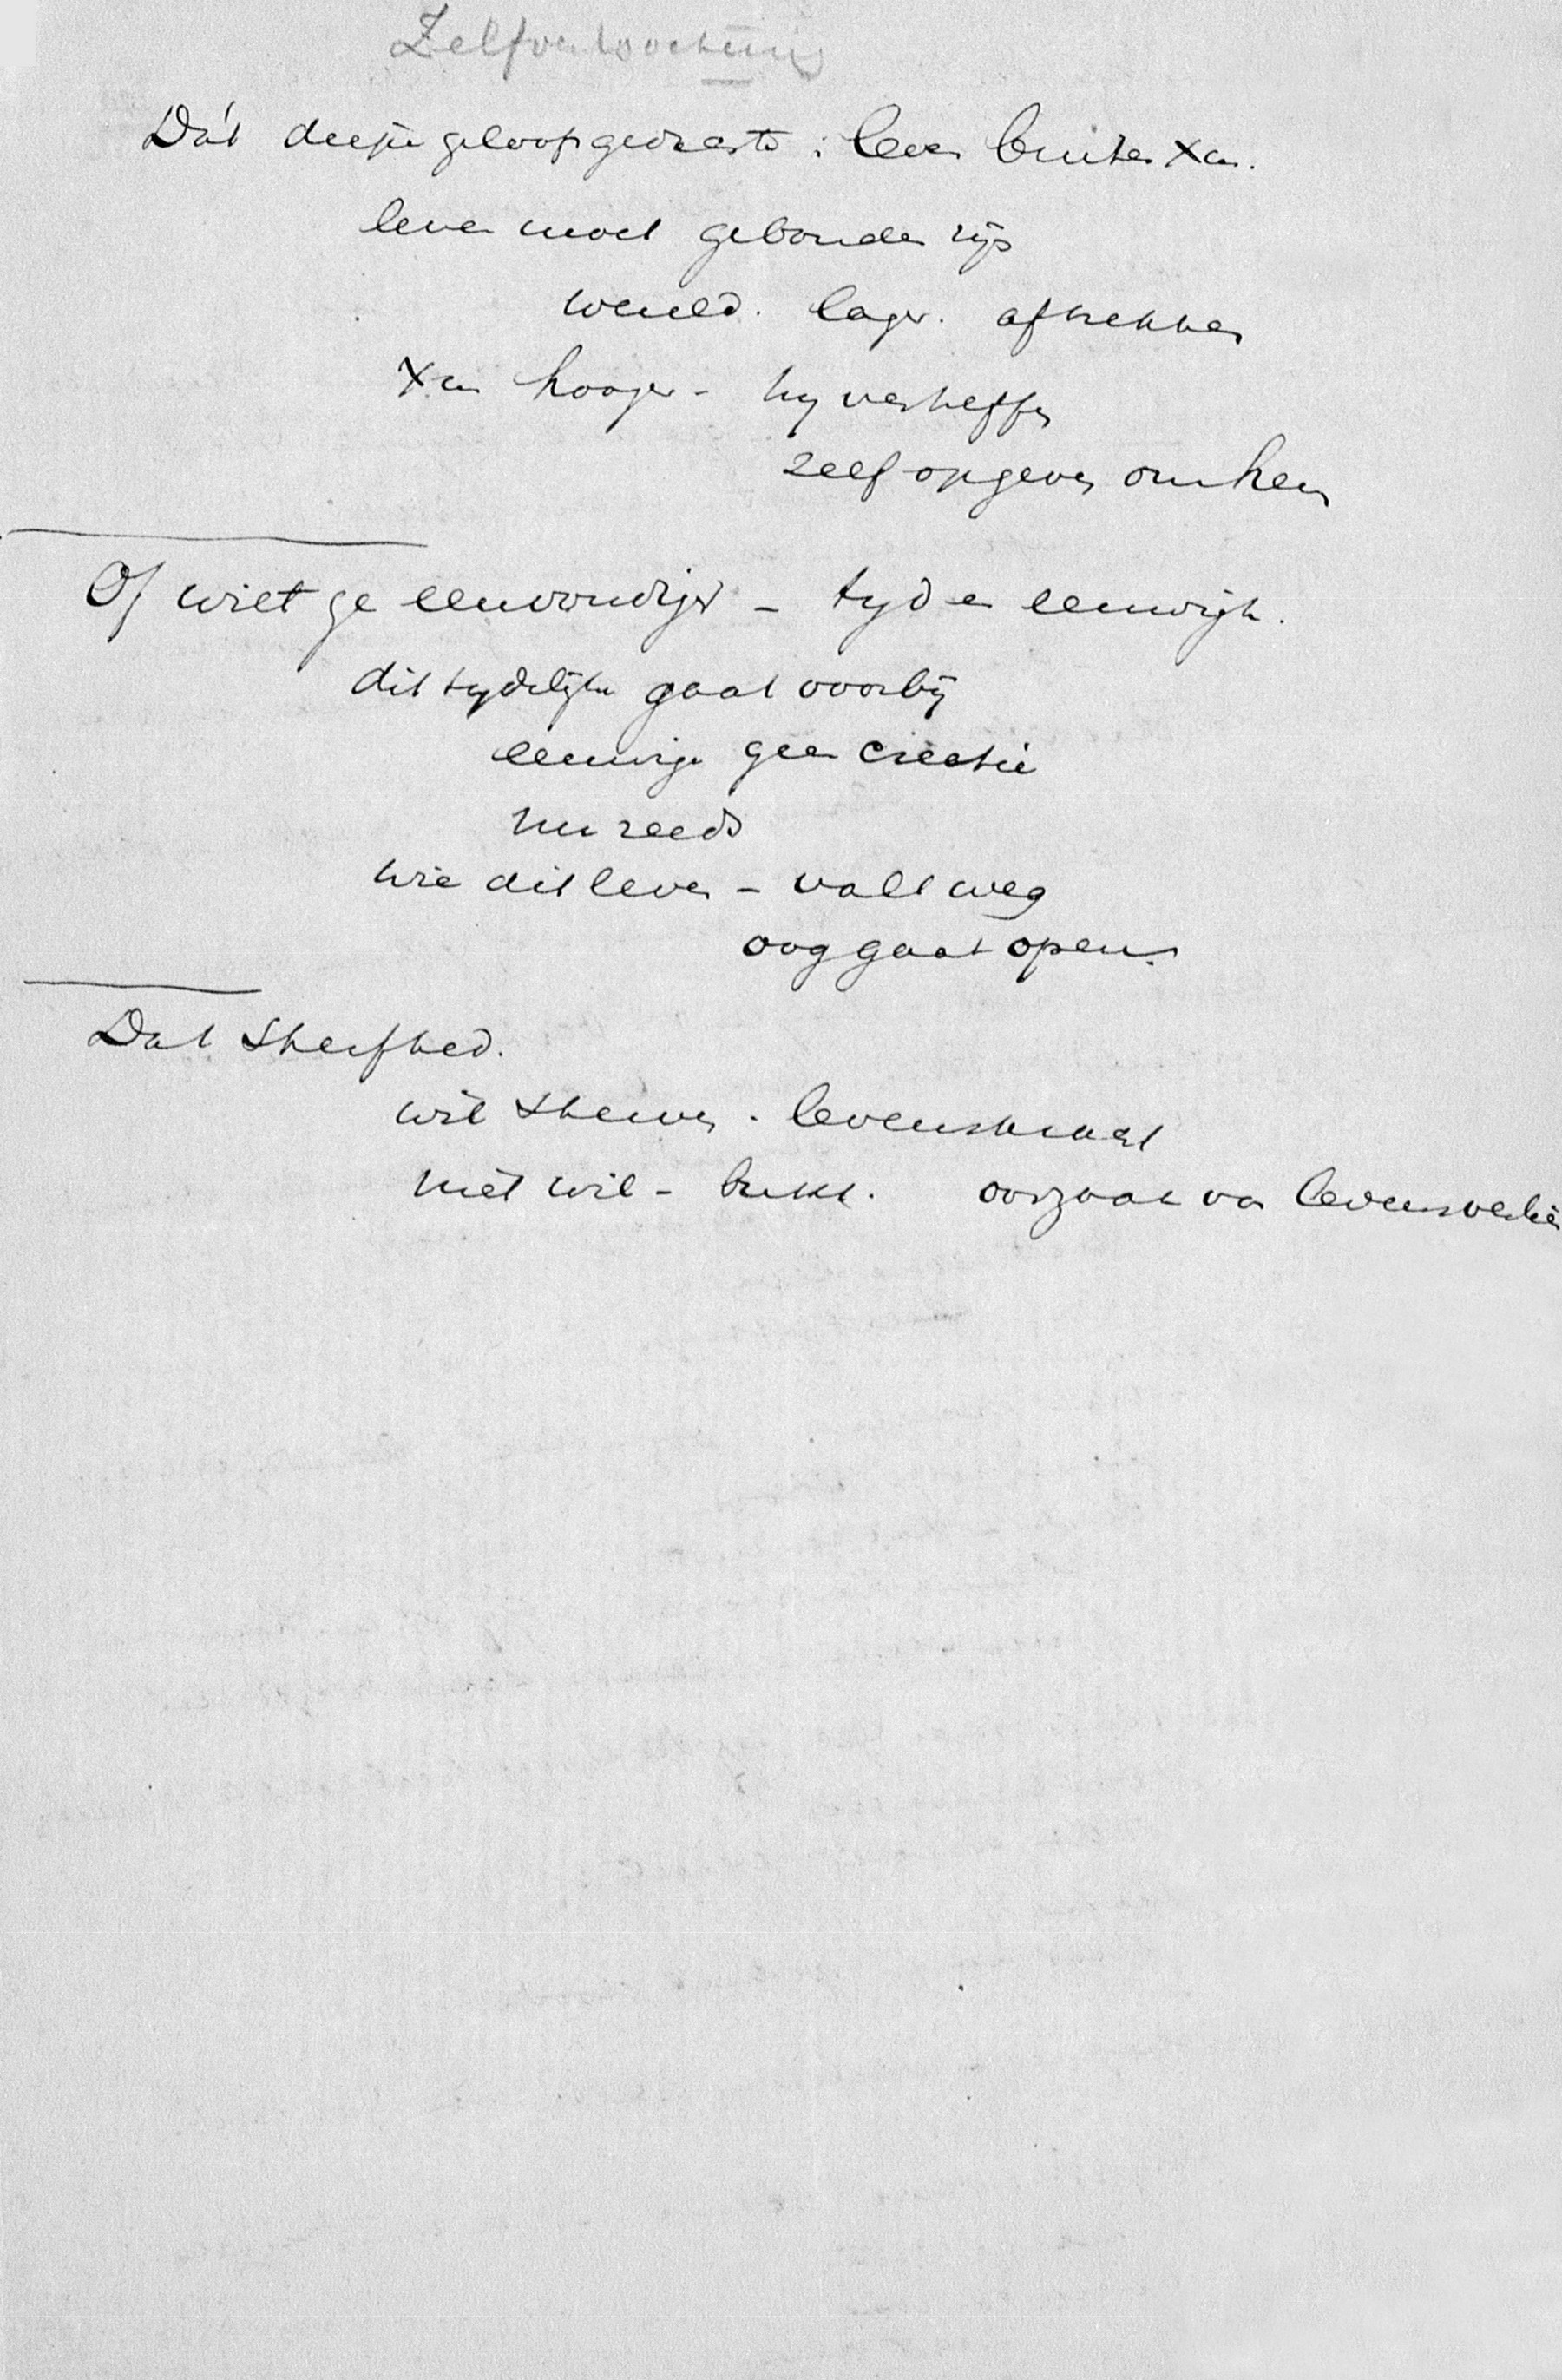 Zelfverloochening
Dát diepe geloofsgedachte : leven buiten Xus.
leven moet gebonden zijn
wereld. lager. aftrekken
Xus hooger - hy verheffen
zelf opgeven om hem
Of wilt ge eenvoudiger - tyd en eeuwigh.
dit tydelijke gaat voorbij
eeuwige geen creatie
nu reeds
wie dit leven - valt weg
oog gaat open.
Dat Sterfbed.
wil sterven . levenskracht
niet wil - brekt. oorzaak van levensverlies